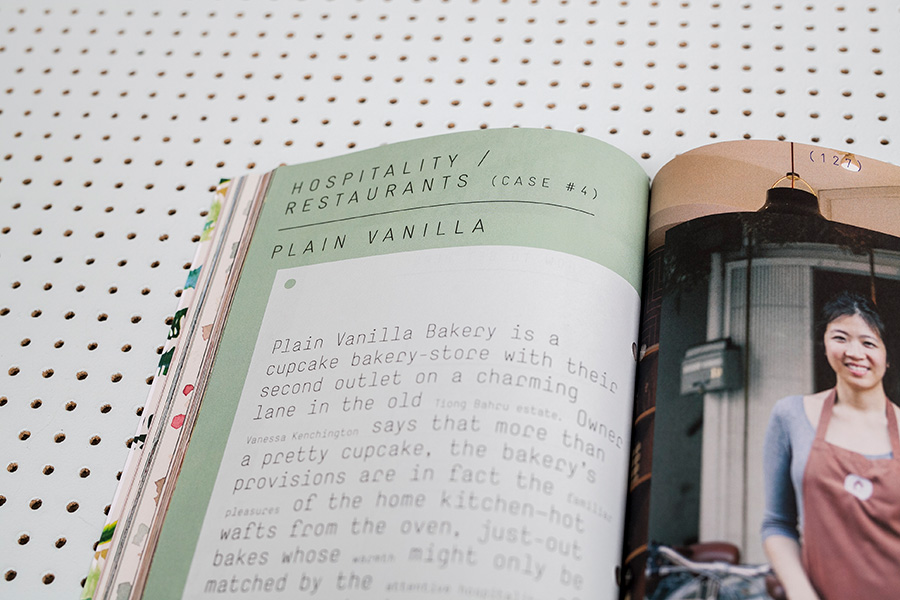 HOSPITALITY /
RESTAURANTS (CASE #4)
PLAIN VANILLA
(127)
Plain Vanilla Bakery is a
cupcake bakery-store with their
second outlet on a charming
lane in the old Tiong Bahru estate. Owner
Vanessa Kenchington says that more than
a pretty cupcake, the bakery's
provisions are in fact the familiar
pleasures of the home kitchen-hot
wafts from the oven, just-out
bakes whose warmth might only be
matched by the attentive hospitality of